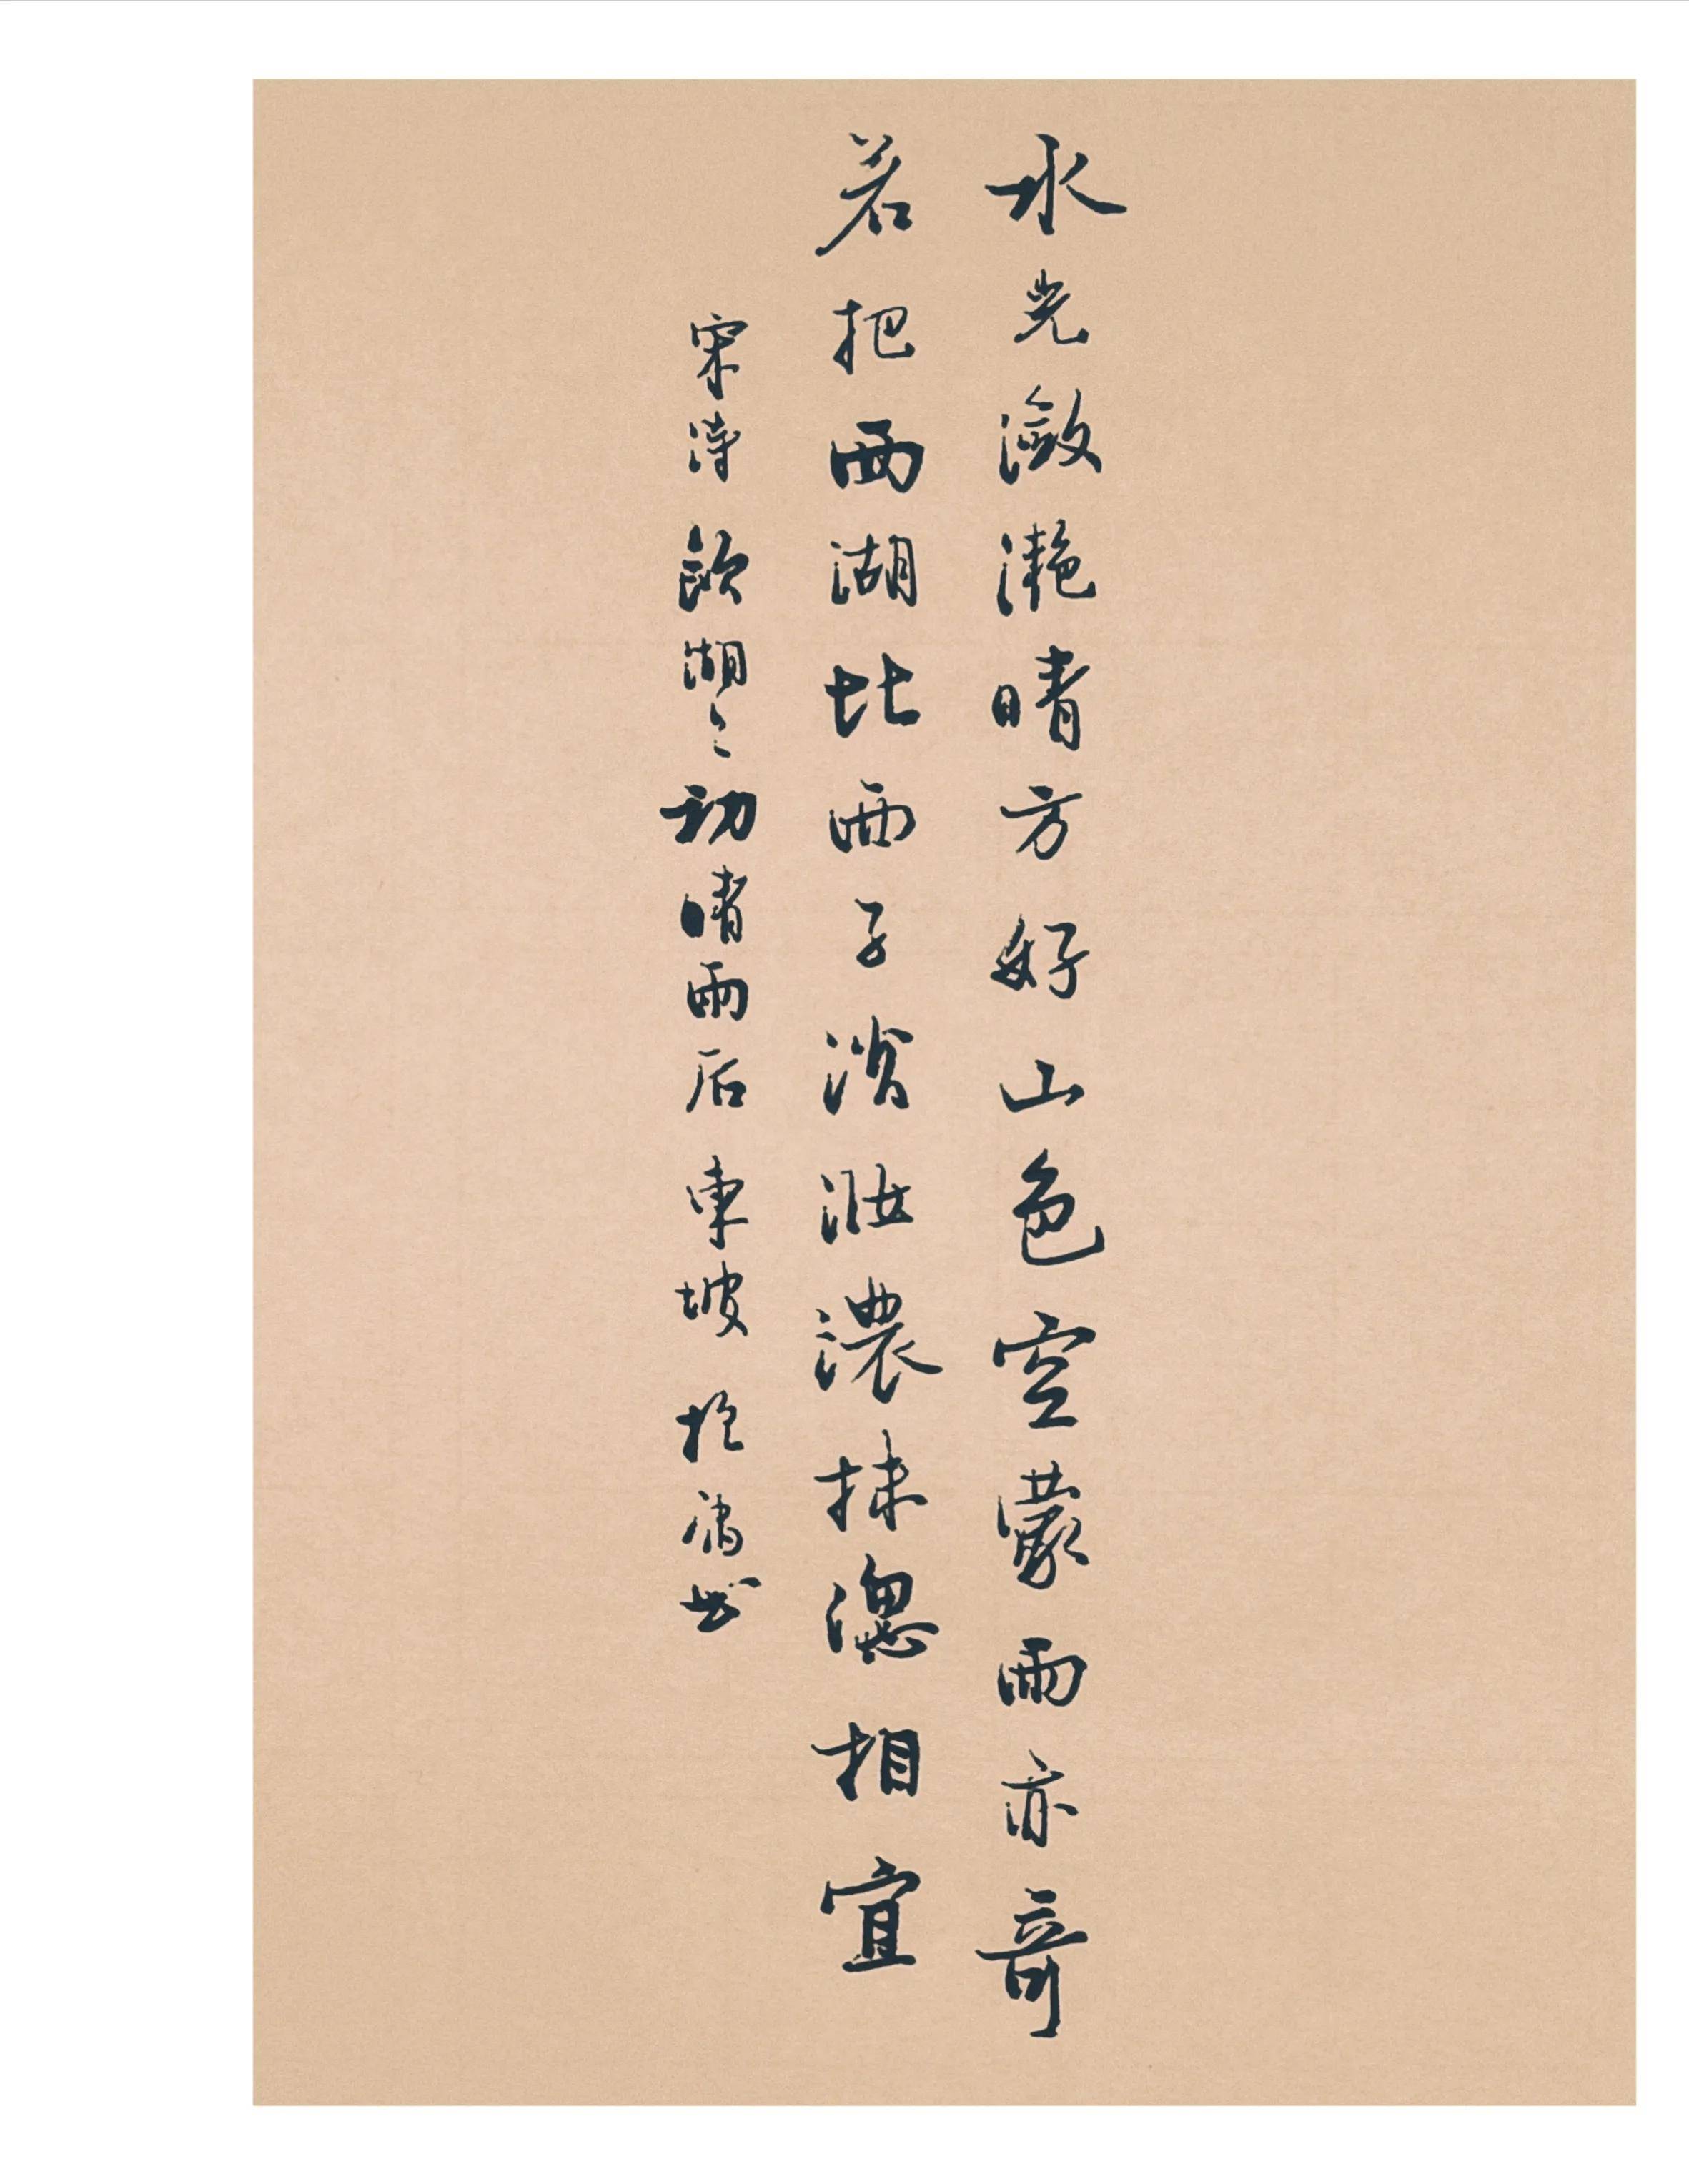 水光瀲灔晴方好山色空濛雨亦奇
若把西湖比西子淡妝濃抹總相宜
宋诗 飲湖上初晴雨后 東坡 书